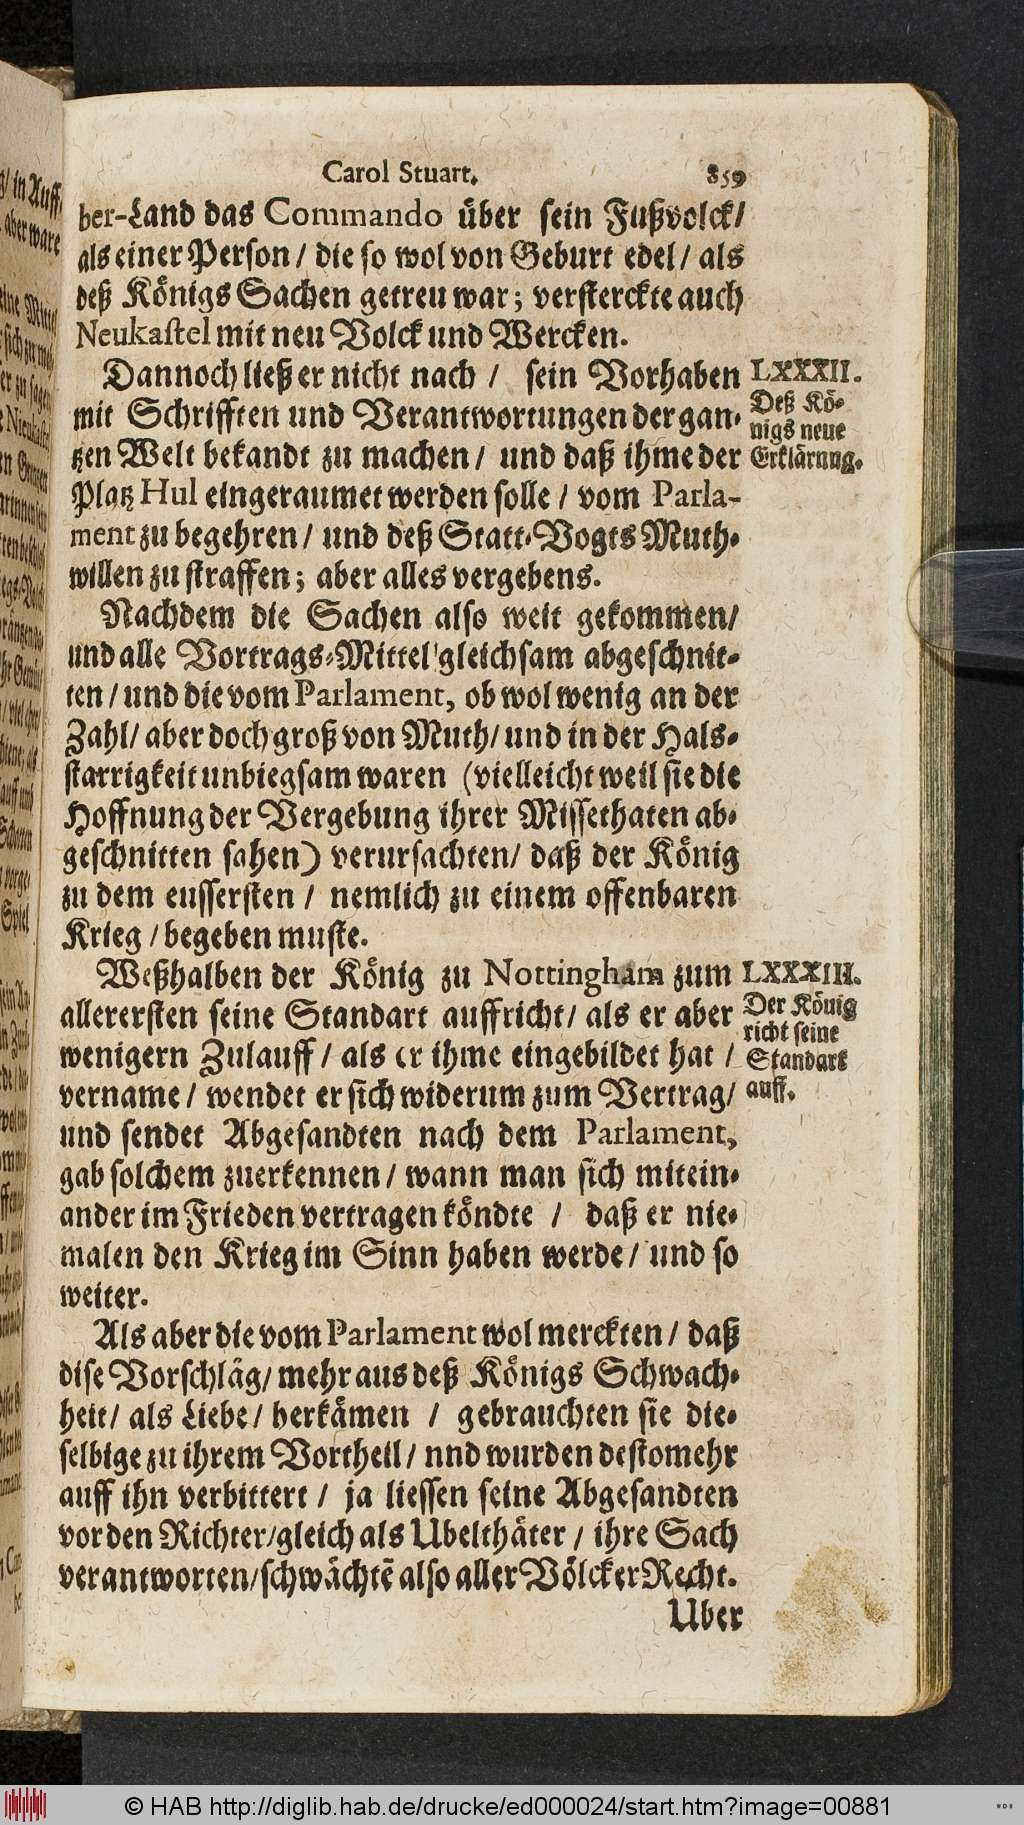 Carol Stuart. 859
ber-Land das Commando über sein Fußvolck/
als einer Person / die so wol von Geburt edel / als
deß Königs Sachen getreu war; versterckte auch
Neukastel mit neu Volck und Wercken.
Dannoch ließ er nicht nach / sein Vorhaben
mit Schrifften und Verantwortungen der gan-
tzen Welt bekandt zu machen / und daß ihme der
Platz Hul eingeraumet werden solle / vom Parla-
ment zu begehren / und deß Statt-Vogts Muth-
willen zu straffen; aber alles vergebens.
LXXXII.
Deß Kö-
nigs neue
Erklärung.
Nachdem die Sachen also weit gekommen/
und alle Vortrags-Mittel gleichsam abgeschnit-
ten / und die vom Parlament, ob wol wenig an der
Zahl/ aber doch groß von Muth/ und in der Hals-
starrigkeit unbiegsam waren (vielleicht weil sie die
Hoffnung der Vergebung ihrer Missethaten ab-
geschnitten sahen) verursachten/ daß der König
zu dem eussersten / nemlich zu einem offenbaren
Krieg / begeben muste.
Weßhalben der König zu Nottingham zum
allerersten seine Standart auffricht/ als er aber
wenigern Zulauff / als er ihme eingebildet hat /
vername / wendet er sich widerum zum Vertrag/
und sendet Abgesandten nach dem Parlament,
gab solchem zuerkennen / wann man sich mitein-
ander im Frieden vertragen köndte / daß er nie-
malen den Krieg im Sinn haben werde / und so
weiter.
LXXXIII.
Der König
richt seine
Standart
auff.
Als aber die vom Parlament wol merckten / daß
dise Vorschläg/ mehr aus deß Königs Schwach-
heit/ als Liebe/ herkämen / gebrauchten sie die-
selbige zu ihrem Vortheil / nnd wurden destomehr
auff ihn verbittert / ja liessen seine Abgesandten
vor den Richter/gleich als Ubelthäter / ihre Sach
verantworten/schwächtē also aller Völcker Recht.
Uber
© HAB http://diglib.hab.de/drucke/ed000024/start.htm?image=00881